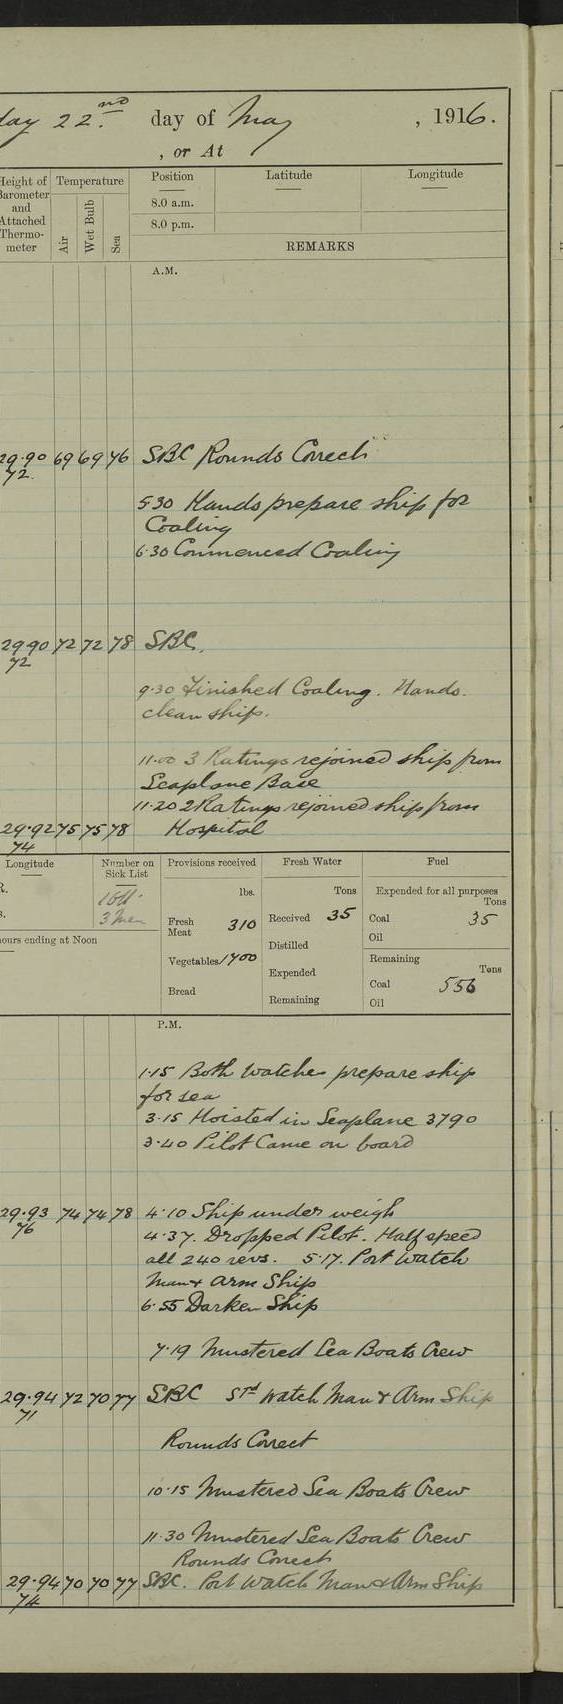 day 22.nd day of May, 1916.
, or At
Height of Barometer and Attached Thermometer
Temperature
Air
Wet Bulb
Sea
Position
Latitude
Longitude
8.0 a.m.
8.0 p.m.
REMARKS
A.M.
29.90 69 69 76 SBC Rounds Correct
72.
5.30 Hands prepare ship for
Coaling
6.30 Commenced Coaling
29.90 72 72 78 SBC.
72
9.30 Finished Coaling. Hands.
clean ship.
11.00 3 Ratings rejoined ship from
Seaplane Base
11.20 2 Ratings rejoined ship from
29.92 75 75 78 Hospital
74
Longitude
Number on Sick List
3 Men
hours ending at Noon
Provisions received
lbs.
Fresh Meat 310
Vegetables 1400
Bread
Fresh Water
Tons
Received 35
Distilled
Expended
Remaining
Fuel
Expended for all purposes
Tons
Coal 35
Oil
Remaining
Tons
Coal 556
Oil
P.M.
1.15 Both Watches prepare ship
for sea
3.15 Hoisted in Seaplane 3790
3.40 Pilot Came on board
29.93 74 74 78 4.10 Ship under weigh
76
4.37. Dropped Pilot. Half speed
all 240 revs. 5.17. Port Watch
Man & Arm Ship
6.55 Darken Ship
7.19 Mustered Sea Boats Crew
29.94 72 70 77 SBC Std Watch Man & Arm Ship
71
Rounds Correct
10.15 Mustered Sea Boats Crew
11.30 Mustered Sea Boats Crew
Rounds Correct
29.94 70 70 77 SBC. Port Watch Man & Arm Ship
74